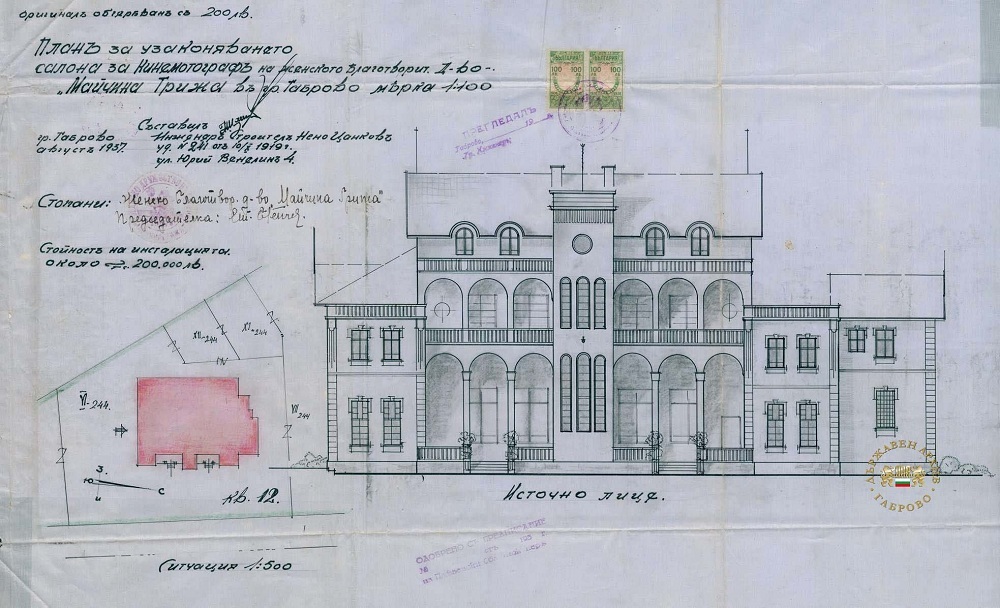 Оригиналъ обгербванъ съ 200 лв.
Планъ за узаконяването
салона за Кинематографъ на женското благотворит. Д-во-
„Майчина Грижа въ гр. Габрово мѣрка 1:100
Съставилъ
гр. Габрово
августъ 1937.
Инженеръ Строителъ Нено Цанковъ
уд. № 241 отъ 10/X 1919 г.
ул. Юрий Венелинъ 4.
Стопани: Женско благотвор. д-во „Майчина Грижа"
Председателка:
Стойность на инсталацията
около 200.000 лв.
БЪЛГАРИЯ
100 100
БЪЛГАРИЯ
100 100
ПРЕГЛЕДАЛЪ
19
XII-244
XI-244
VI-244.
VII 244
З.
Ю
С
И
кв. 12.
Ситуация 1:500
Источно лице.
ОДОБРЕНО СЪ
№
ДЪРЖАВЕН АРХИВ
ГАБРОВО